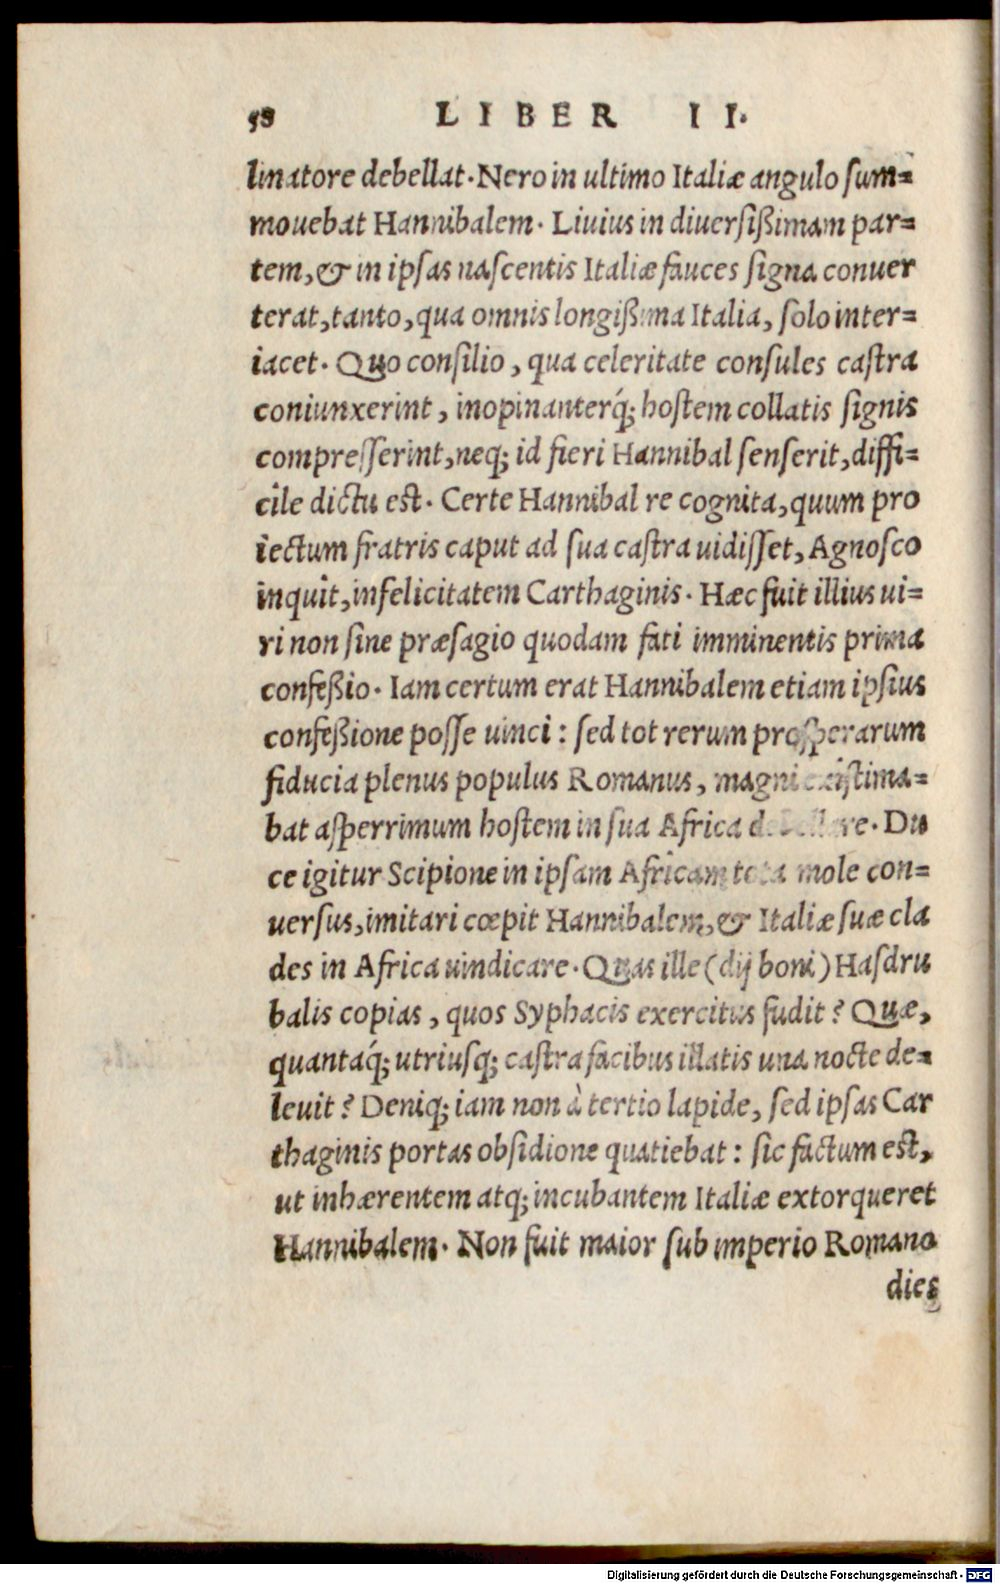 58 LIBER II.
linatore debellat. Nero in ultimo Italiæ angulo sum-
mouebat Hannibalem. Liuius in diuersißimam par-
tem, & in ipsas nascentis Italiæ fauces signa conuer
terat, tanto, qua omnis longißima Italia, solo inter-
iacet. Quo consilio, qua celeritate consules castra
coniunxerint, inopinanterq́; hostem collatis signis
compresserint, neq; id fieri Hannibal senserit, diffi-
cile dictu est. Certe Hannibal re cognita, quum pro
iectum fratris caput ad sua castra uidisset, Agnosco
inquit, infelicitatem Carthaginis. Hæc fuit illius ui-
ri non sine præsagio quodam fati imminentis prima
confeßio. Iam certum erat Hannibalem etiam ipsius
confeßione posse uinci: sed tot rerum prosperarum
fiducia plenus populus Romanus, magni existima-
bat asperrimum hostem in sua Africa debellare. Du
ce igitur Scipione in ipsam Africam tota mole con-
uersus, imitari cœpit Hannibalem, & Italiæ suæ cla
des in Africa uindicare. Quas ille (dij boni) Hasdru
balis copias, quos Syphacis exercitus fudit? Quæ,
quantaq́; utriusq; castra facibus illatis una nocte de-
leuit? Deniq; iam non à tertio lapide, sed ipsas Car
thaginis portas obsidione quatiebat: sic factum est,
ut inhærentem atq; incubantem Italiæ extorqueret
Hannibalem. Non fuit maior sub imperio Romano
dies
Digitalisierung gefördert durch die Deutsche Forschungsgemeinschaft - DFG